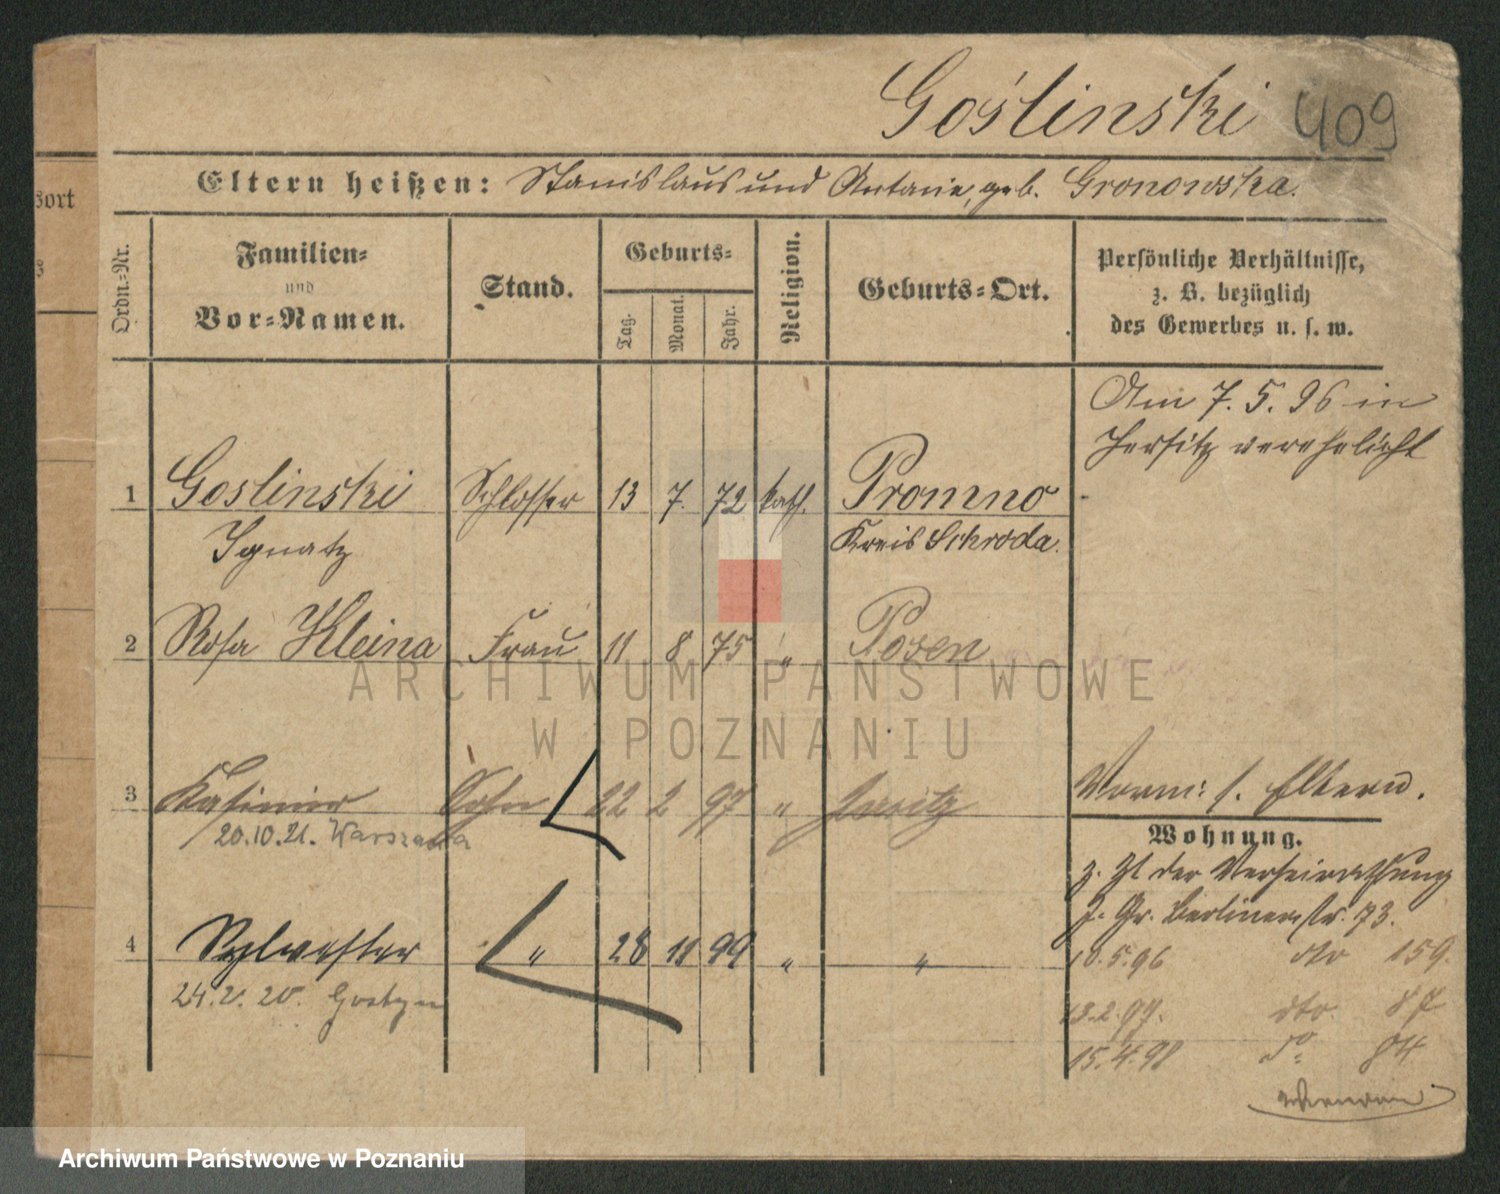 Goślinski 409
Eltern heißen: Stanislaus und Antonie, geb. Gronowska.
sort
Ordn.-Nr.
Familien-
und
Vor-Namen.
Stand.
Geburts-
Tag.
Monat.
Jahr.
Religion.
Geburts-Ort.
Persönliche Verhältnisse,
z. B. bezüglich
des Gewerbes u. s. w.
Am 7. 5. 96 in
Jersitz verehelicht
1 Goslinski Schlosser 13 7. 72 kath. Promno
Ignatz Kreis Schroda.
2 Rosa Kleina Frau 11 8 75 " Posen
3 Kasimir Sohn 22 2 97 " Jersitz
20.10.21. Warszawa
Vorm: s. Eltern.
Wohnung.
z. Zt. der Verheirathung
J. Gr. Berlinerstr. 73.
4 Sylvester " 28 11 99 " "
24. 2. 20. Gostyn
18.5.96 dto 159.
13.2.97. dto. 87
15.4.98 do 84
ARCHIWUM PAŃSTWOWE
W POZNANIU
Archiwum Państwowe w Poznaniu